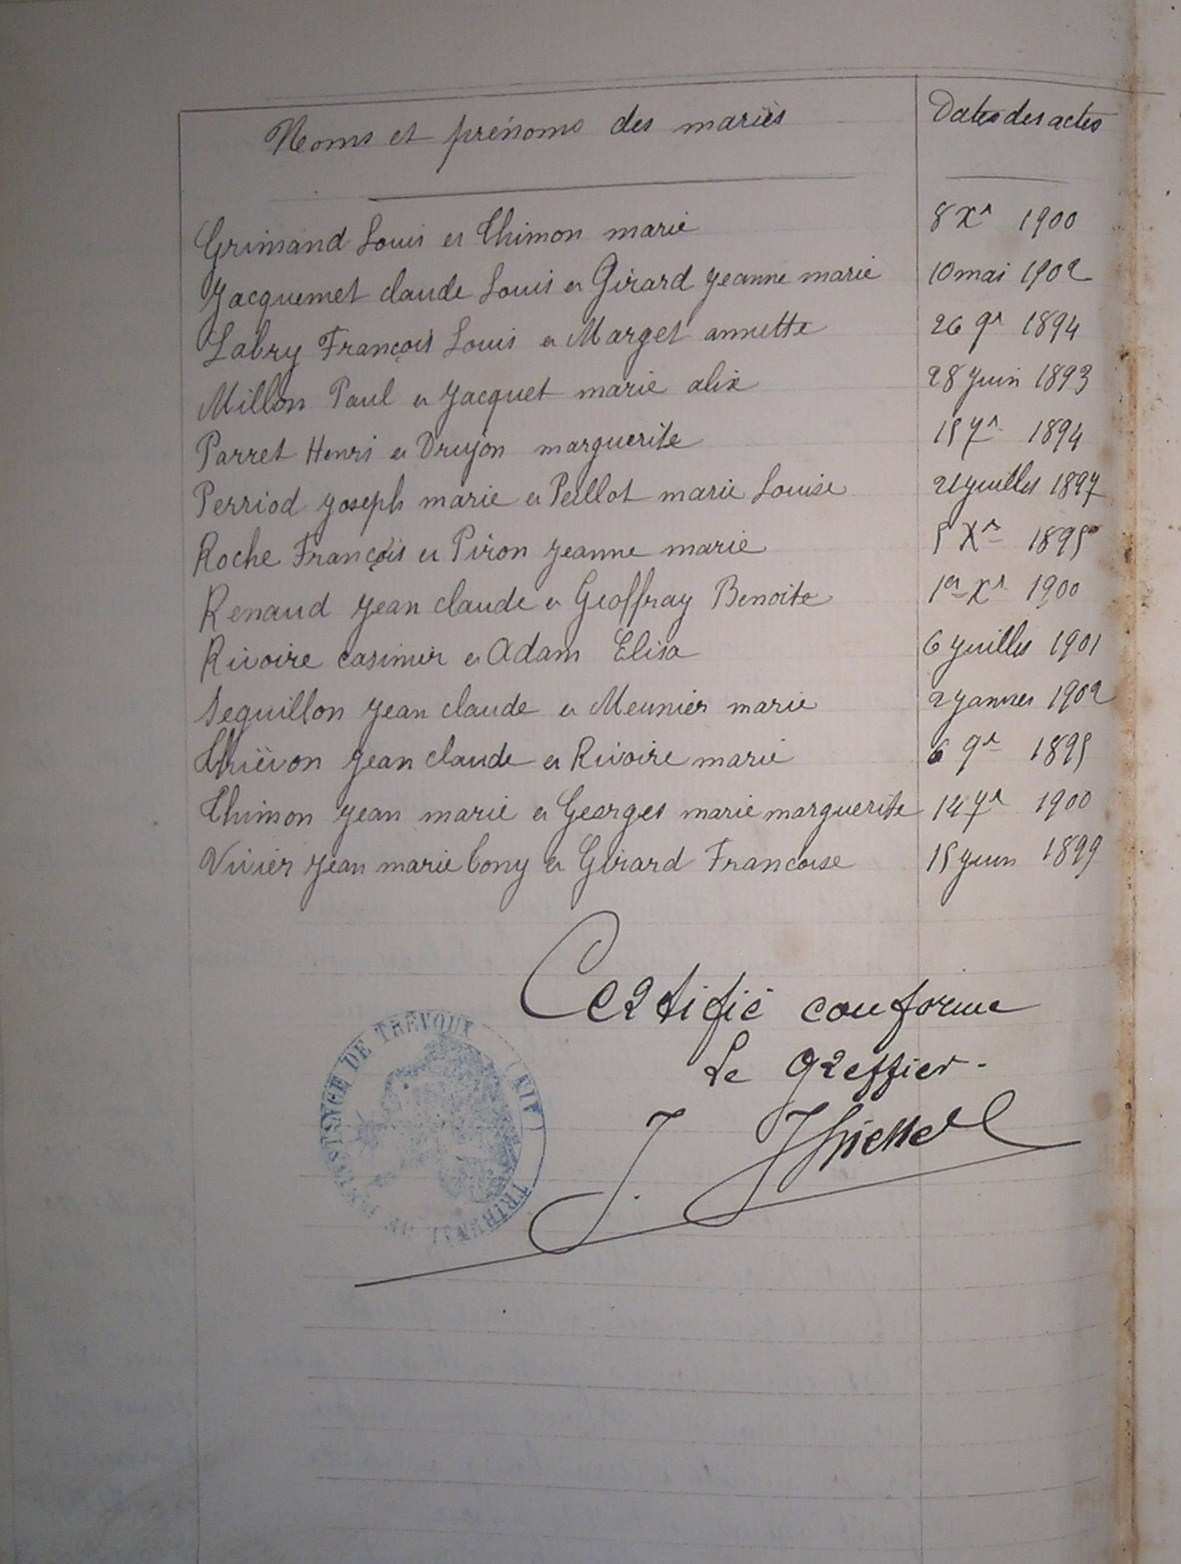 Noms et prénoms des mariés Dates des actes
Grimand Louis et Thimon marie 8 Xr 1900
Jacquemet claude Louis et Girard jeanne marie 10 mai 1902
Labry François Louis et Marget annette 26 9r 1894
Millon Paul et Jacquet marie alix 28 juin 1893
Parret Henri et Drujon marguerite 15 7r 1894
Perriod joseph marie et Peillot marie Louise 21 juillet 1897
Roche François et Piron jeanne marie 5 Xr 1895
Renaud jean claude et Geoffray Benoite 1er Xr 1900
Rivoire casimir et Adam Elisa 6 juillet 1901
Seguillon jean claude et Meunier marie 2 janvier 1902
Thiévon jean claude et Rivoire marie 6 9r 1895
Thimon jean marie et Georges marie marguerite 14 7r 1900
Vivier jean marie Cony et Girard Francoise 15 juin 1899
Certifié conforme
Le Greffier.
TRIBUNAL DE 1ère INSTANCE DE TRÉVOUX (AIN)